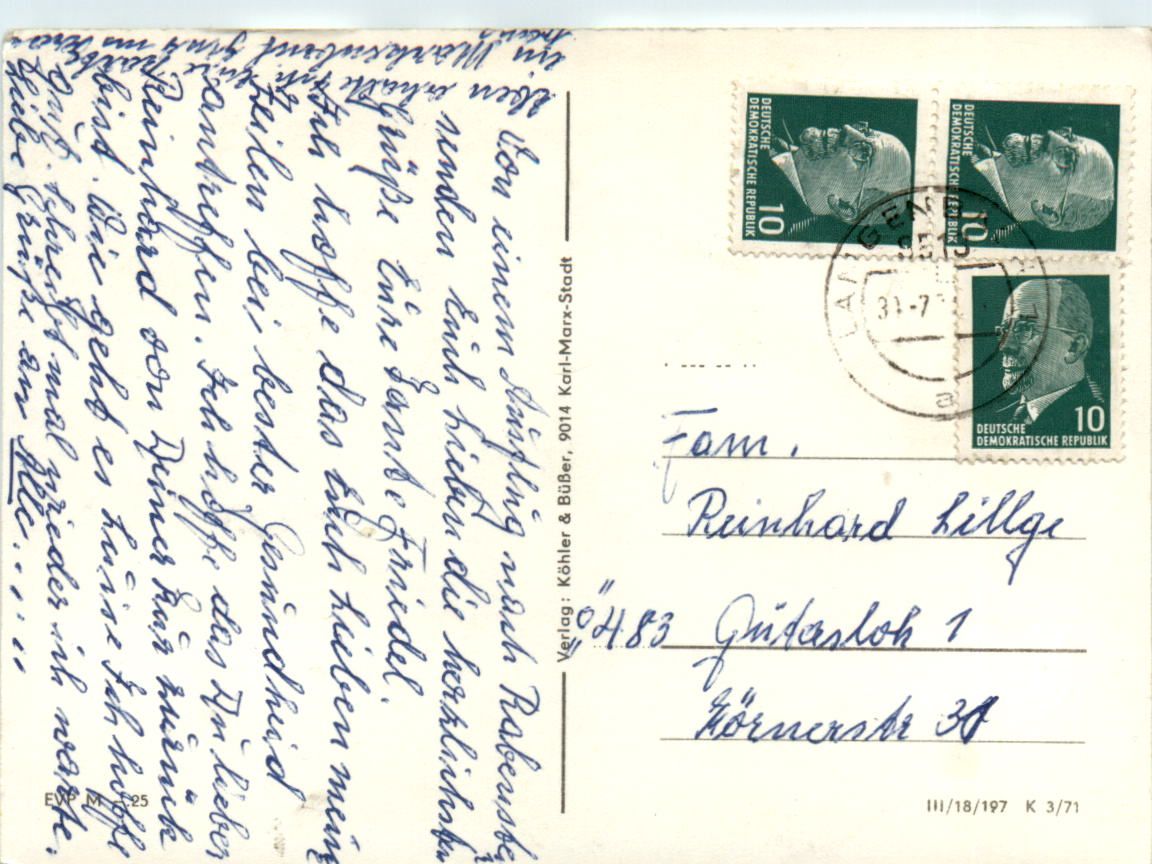 Von einem Ausflug nach Rabenste
senden Euch Lieben die herzlichsten
Grüße Eure Tante Friedel.
Ich hoffe das Euch Lieben meine
Zeilen bei bester Gesundheid
antreffen. Ich hoffe das Du lieber
Reinhard von Deiner Kur zurück
bist. Wie geht es Luise Ich hoffe
gut. Schreibt mal wieder ich warte.
Liebe Grüße an Alle.....
Eben erhalte ich Eure Karte
ein Markenbrief ging
Verlag: Köhler & Büßer, 9014 Karl-Marx-Stadt
EVP M -.25
DEUTSCHE
DEMOKRATISCHE REPUBLIK
10
DEUTSCHE
DEMOKRATISCHE REPUBLIK
10
DEUTSCHE
DEMOKRATISCHE REPUBLIK
10
31.-7
a
Fam.
Reinhard Lillge
"ö" 483 Gütersloh 1
Körnerstr 31
III/18/197 K 3/71